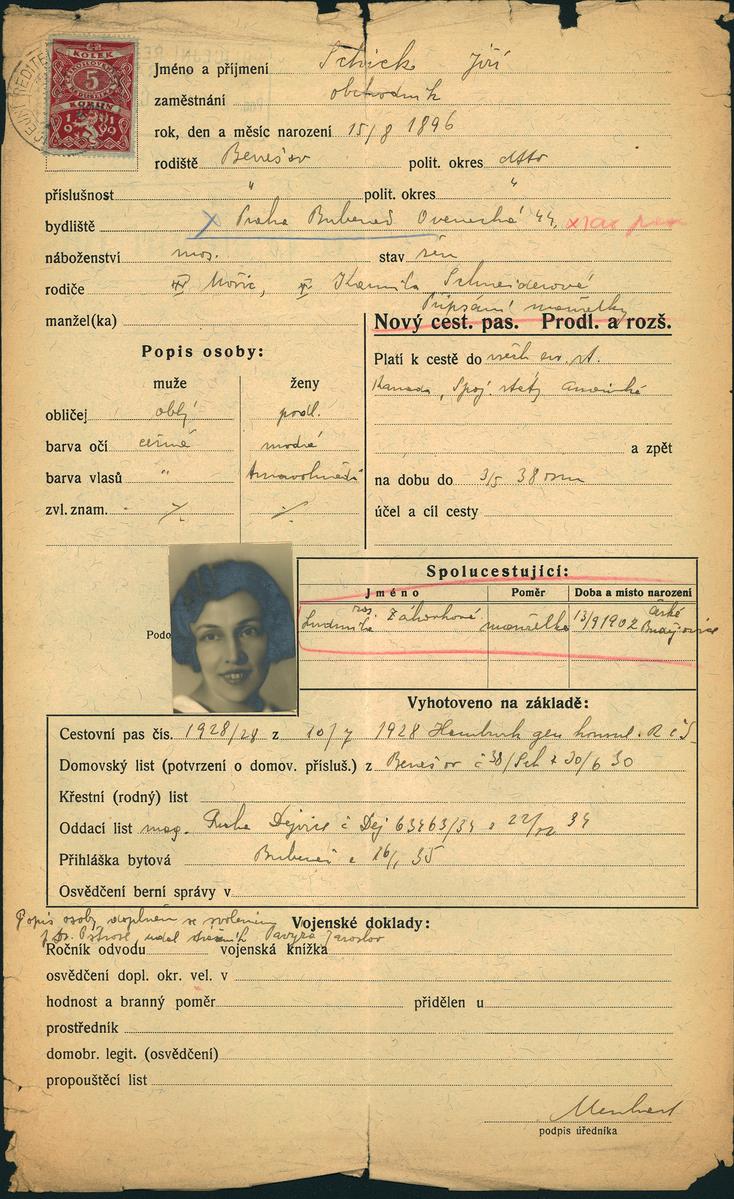 KOLEK
5
KORUN
1919
Jméno a příjmení Schick Jiří
zaměstnání obchodník
rok, den a měsíc narození 15/8 1896
rodiště Benešov polit. okres dtto
příslušnost " polit. okres "
bydliště X Praha Bubeneč Ovenecká 44,
náboženství mos. stav žen
rodiče Mořic, Kamila Schneiderové
Připsání manželky
manžel(ka)
Nový cest. pas. Prodl. a rozš.
Popis osoby:
muže ženy
obličej oblý podl.
barva očí černé modré
barva vlasů " tmavohnědé
zvl. znam.
Platí k cestě do všech ev. st.
Kanada, Spoj. státy Americké
a zpět
na dobu do 3/5 38
účel a cíl cesty
Spolucestující:
Jméno Poměr Doba a místo narození
Ludmila roz. Záhorkové manželka 13/9 1902 České Budějovice
Podo
Vyhotoveno na základě:
Cestovní pas čís. 1928/28 z 10/7 1928 Hamburk gen konsul. RčS
Domovský list (potvrzení o domov. přísluš.) z Benešov č 38/Sch z 20/6 30
Křestní (rodný) list
Oddací list mag. Praha Dejvice č Dej 63463/34 z 22/12 34
Přihláška bytová Bubeneč z 16/1 35
Osvědčení berní správy v
Popis osoby doplněn se svolením
Jaroslav
Vojenské doklady:
Ročník odvodu vojenská knížka
osvědčení dopl. okr. vel. v
hodnost a branný poměr přidělen u
prostředník
domobr. legit. (osvědčení)
propouštěcí list
podpis úředníka